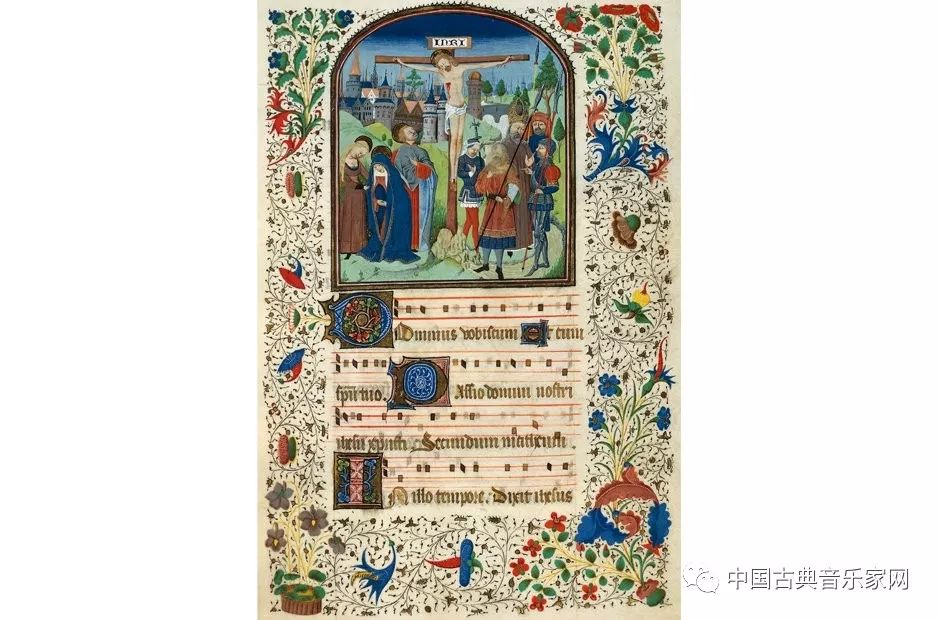 INRI
Dominus vobiscum Et cum
spiritu tuo Passio domini nostri
ihesu xpristi Secundum matheum
In illo tempore. Dixit ihesus
中国古典音乐家网